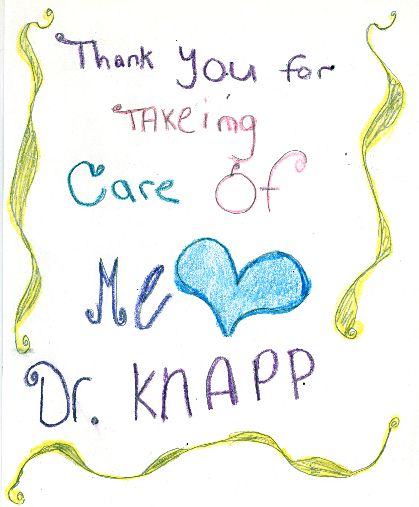 Thank you for
TAKeing
Care Of
Me
Dr. KnAPP